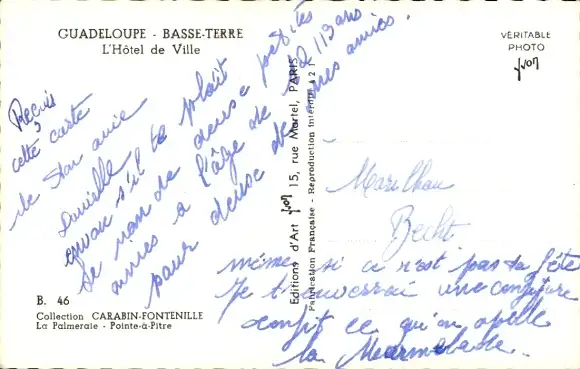 GUADELOUPE - BASSE-TERRE
L'Hôtel de Ville
VÉRITABLE
PHOTO
yvon
Reçois
cette carte
de ton amie
Danielle
envoi s'il te plaît
le nom de deux petites
amies a l'âge de 12 113 ans
pour deux de mes amies.
Editions d'Art yvon 15, rue Martel, PARIS
Fabrication Française - Reproduction interdite
Marilhau
Becht
même si ce n'est pas ta fête
Je t'enverrai une confiture
dont ce qu'on apelle
la Marmelade.
B. 46
Collection CARABIN-FONTENILLE
La Palmeraie - Pointe-à-Pitre